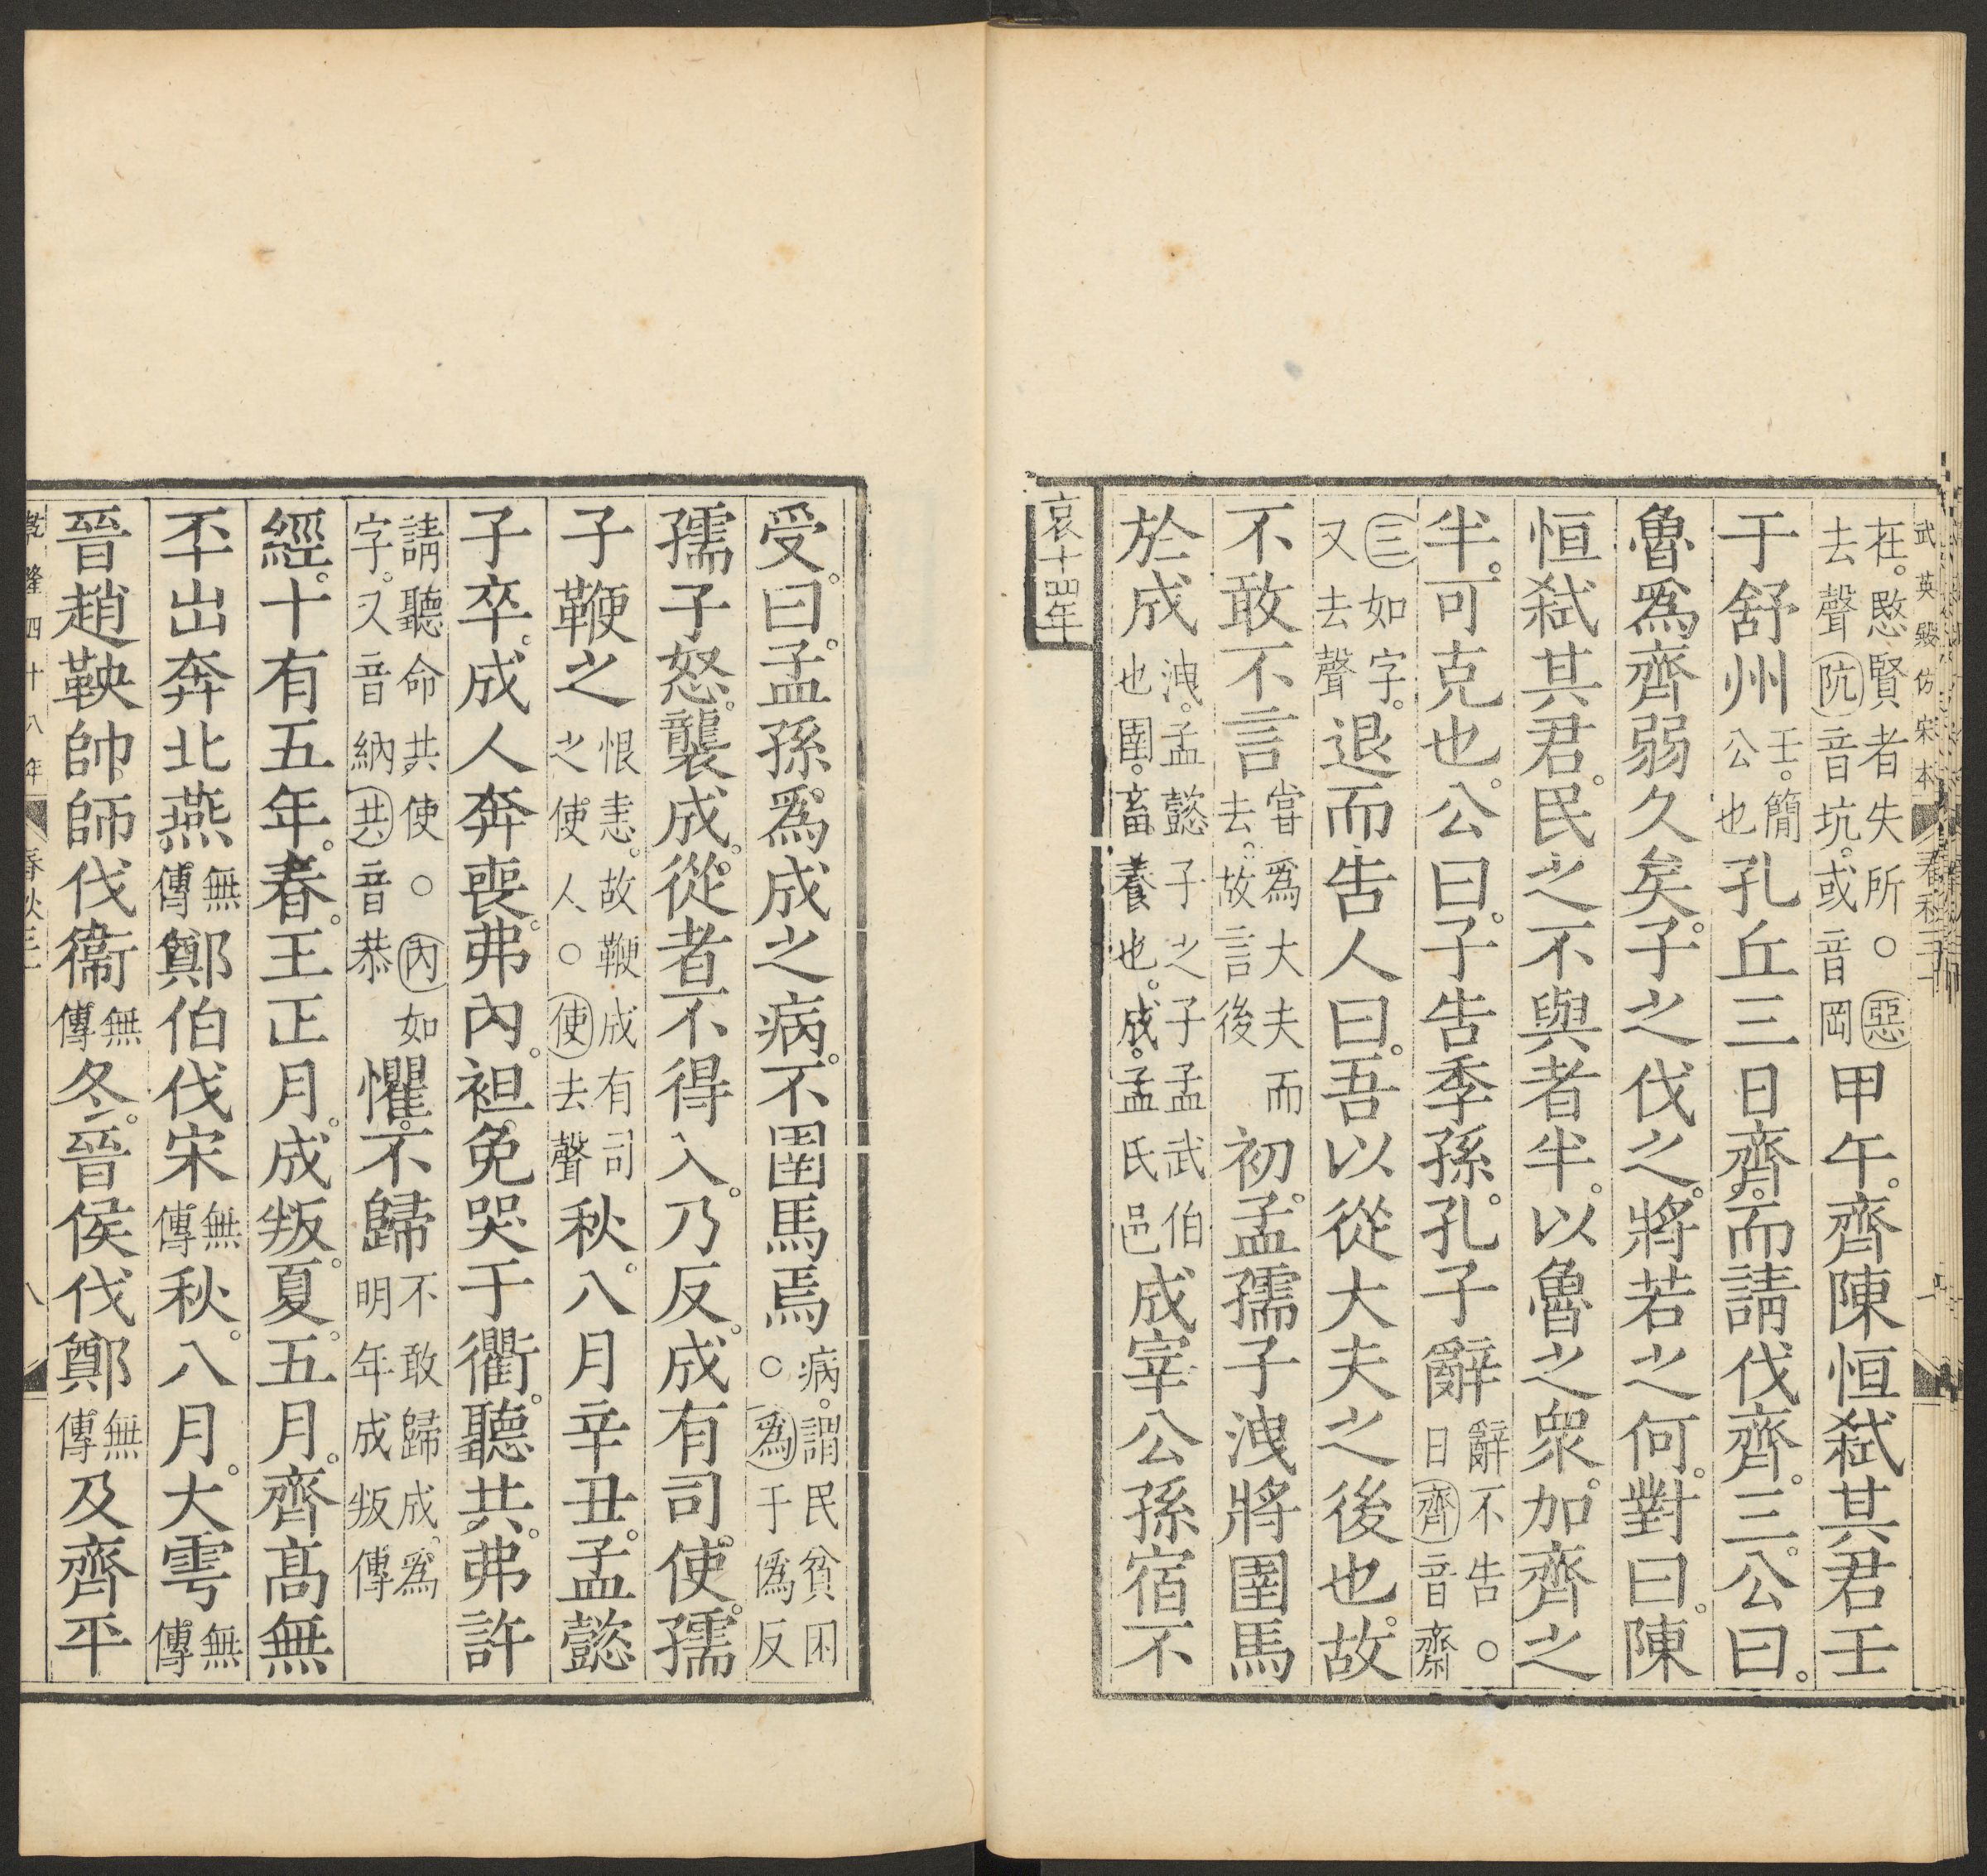 武英殿仿宋本 春秋三十
在。愍賢者失所○惡去聲阬音坑。或音岡甲午。齊陳恒弒其君壬
于舒州壬。簡公也孔丘三日齊。而請伐齊。三。公曰。
魯爲齊弱久矣。子之伐之。將若之何。對曰。陳
恒弒其君。民之不與者半。以魯之衆。加齊之
半。可克也。公曰。子告季孫。孔子辭辭不告○日齊音齋
三如字。又去聲退而告人曰。吾以從大夫之後也。故
不敢不言嘗爲大夫而去。故言後初。孟孺子洩將圉馬
於成洩。孟懿子之子孟武伯也圉。畜養也。成。孟氏邑成宰公孫宿不
哀十四年
受。曰。孟孫。爲成之病。不圉馬焉病。謂民貧困○爲于僞反
孺子怒。襲成。從。者不得入。乃反。成有司。使。孺
子鞭之恨恚。故鞭成有司之使人。○使去聲秋。八月辛丑。孟懿
子卒。成人奔喪。弗內。袒。免哭于衢。聽共。弗許
請聽命共使○內如字。又音納共音恭懼。不歸不敢歸成。爲明年成叛傳
經。十有五年。春。王正月。成叛。夏。五月。齊高無
㔻出奔北燕。無傳鄭伯伐宋無傳秋。八月。大雩無傳
晉趙鞅帥。師伐衞無傳冬。晉侯伐鄭無傳及齊平
乾隆四十八年 春秋三十 八